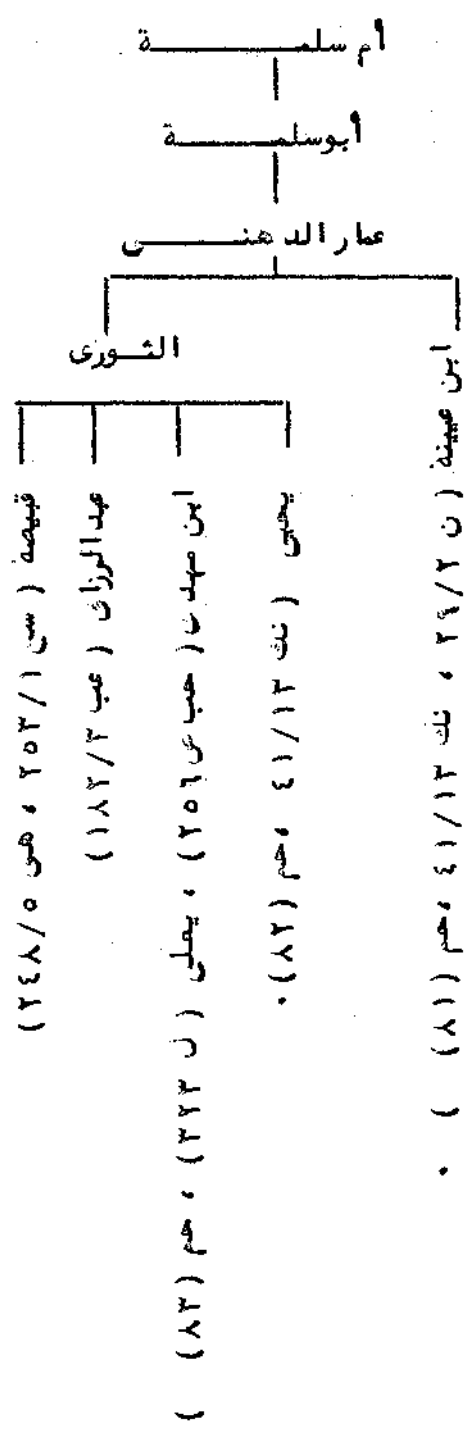 أم سلمة
أبوسلمة
عمار الدهنى
الثورى
ابن عيينة ( ن ٢٩/٢ ، نك ٤١/١٣ ، حم (٨١) ) .
يحيى ( نك ٤١/١٣ ، حم (٨٢) .
ابن مهدى ( حب ص ٢٥٦) ، يعلى ( ل ٣٢٣) ، حم (٨٣) )
عبدالرزاق ( عب ١٨٢/٣)
قبيصة ( سع ٢٥٣/١ ، هق ٢٤٨/٥)